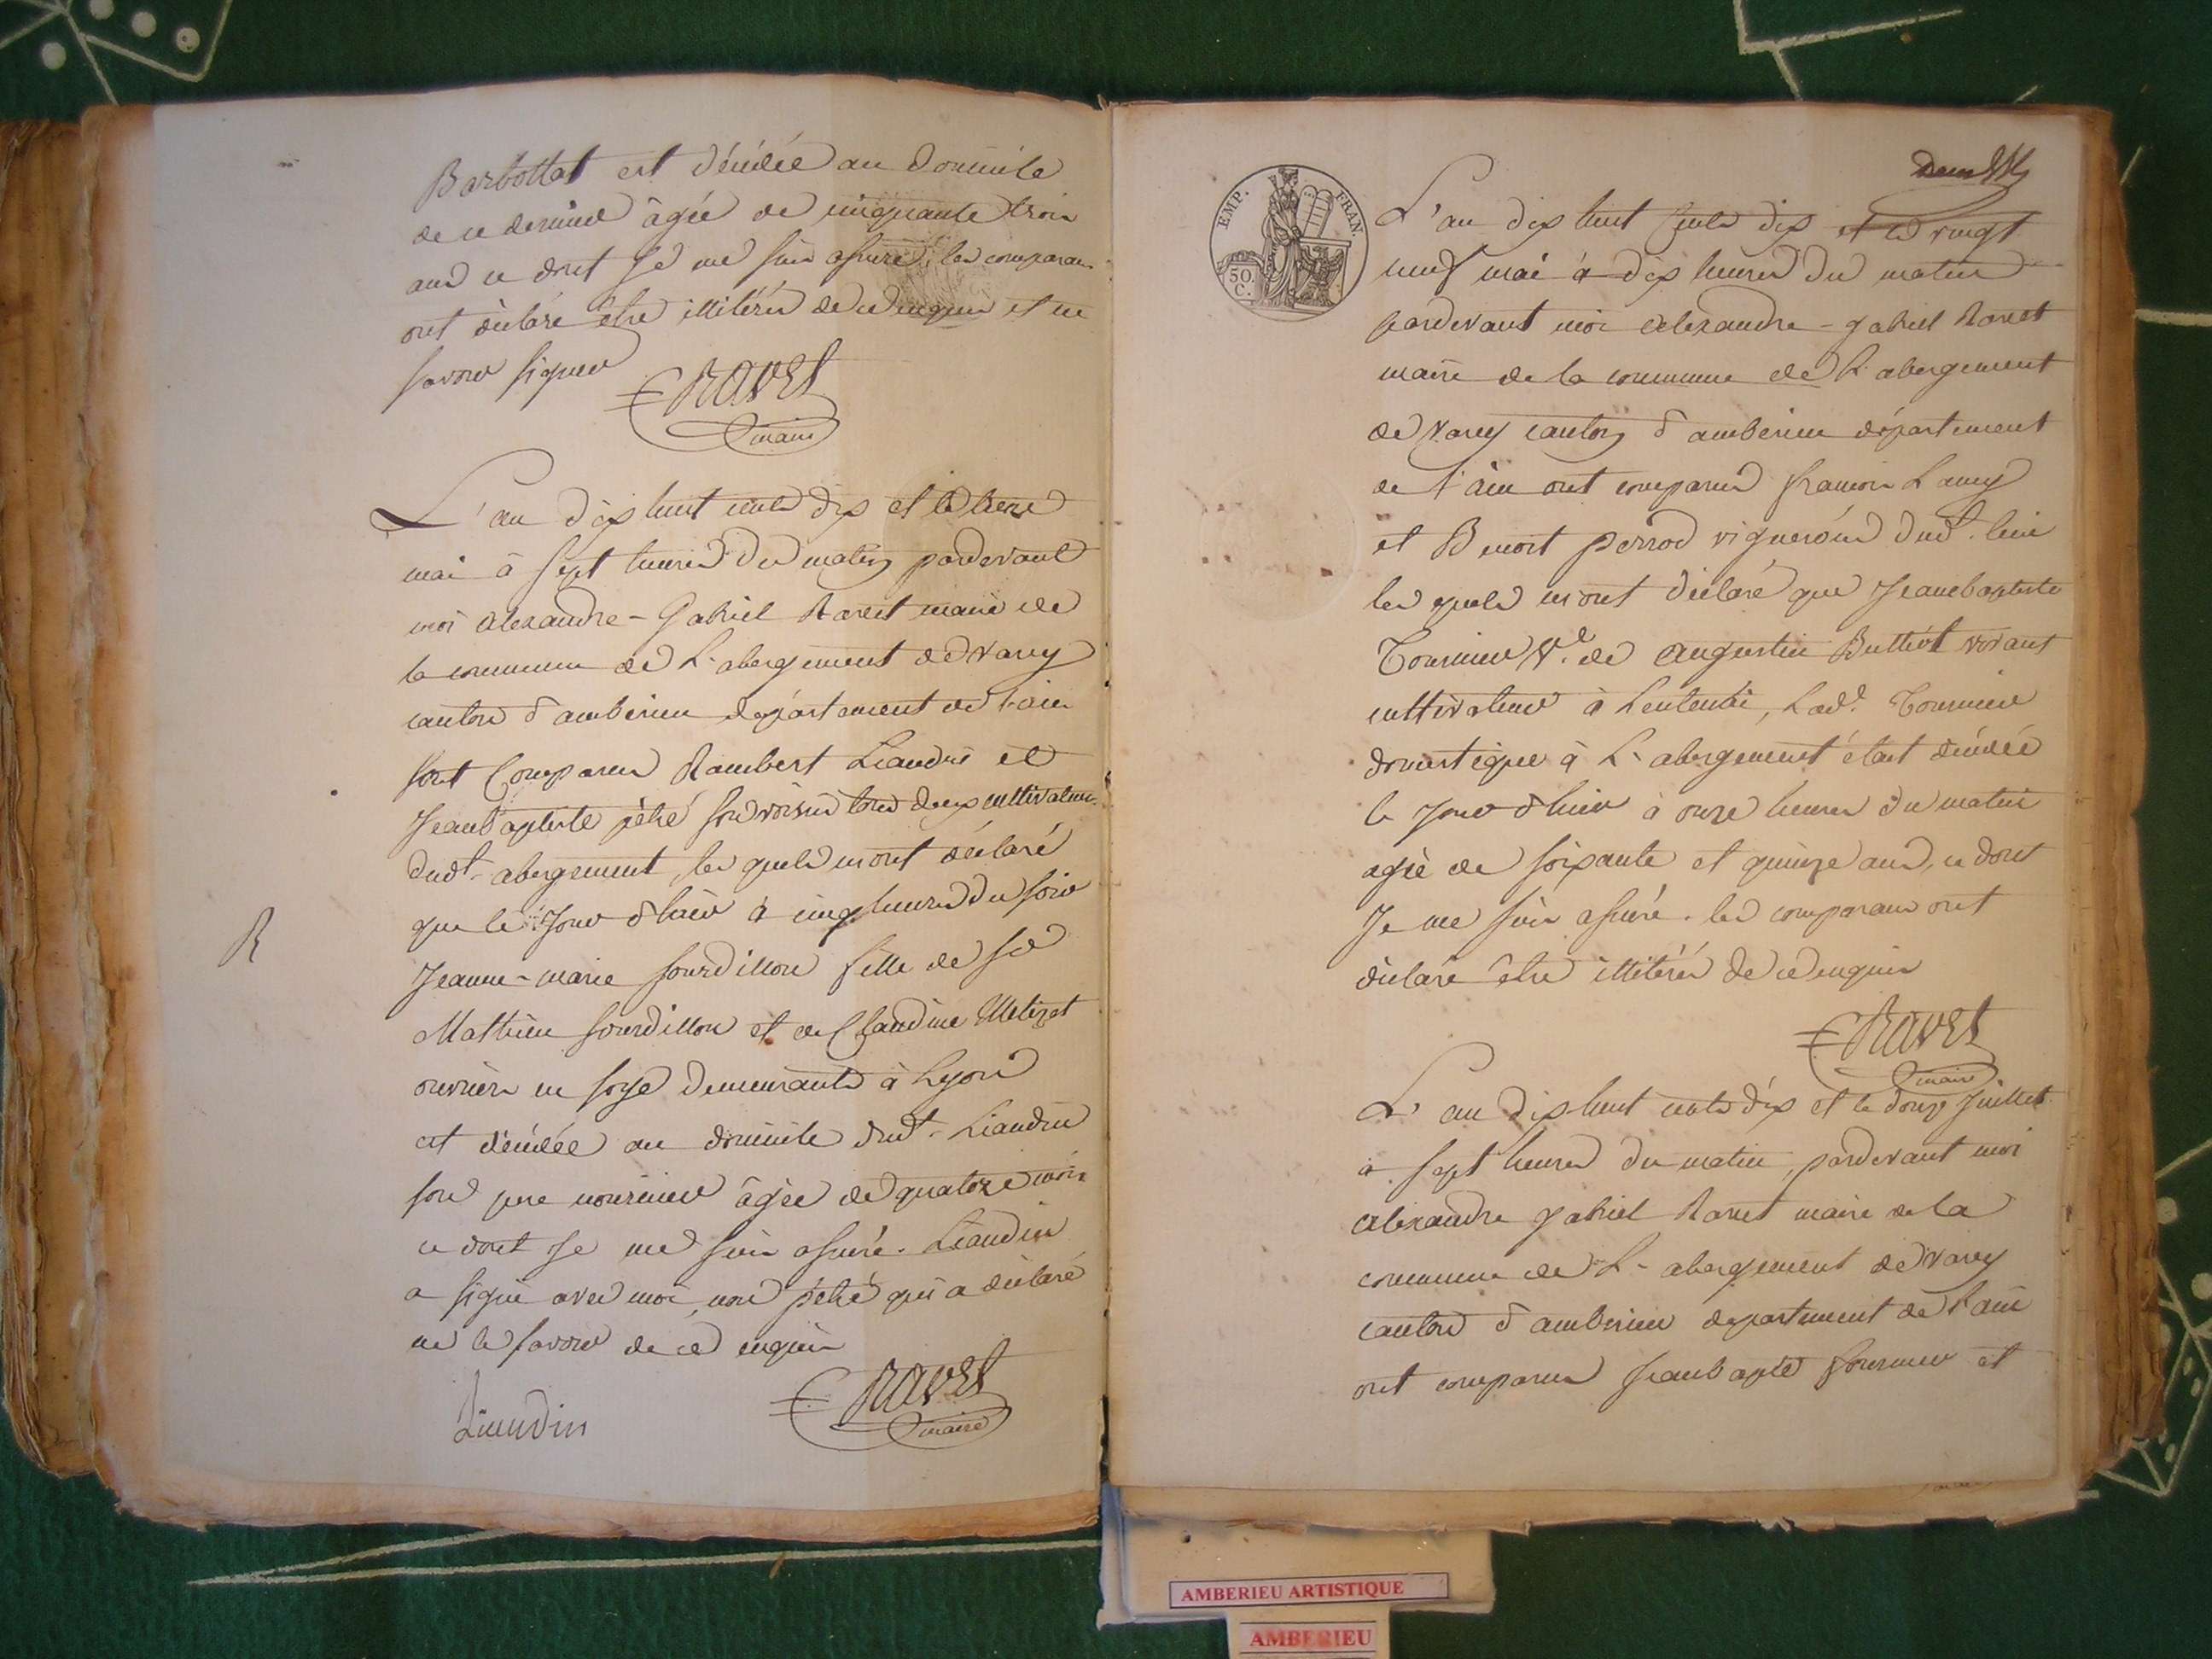 Barbottat est décédée au domicile
de ce dernier âgée de cinquante trois
ans ce dont Je me suis assuré, les comparans
ont déclaré être illitérés de ce enquis et ne
savoir signer
RAVET
maire
L'an dix huit cents dix et le treize
mai à sept heures du matin pardevant
moi alexandre-Gabriel Ravet maire de
la commune de L'abergement de varey
canton d'amberieu département de l'ain
sont Comparus Rambert Liaudin et
Jeanbaptiste pétré son voisin tous deux cultivateurs
dudt. abergement, les quels m'ont déclaré
que le Jour d'hier à cinq heures du soir
R
Jeanne-marie sourdillon fille de
Mathieu sourdillon et de Claudine
ouvriers en soye demeurants à Lyon
est décédée au domicile dudt. Liaudin
son pere nouricier âgée de quatorze mois
ce dont Je me suis assuré. Liaudin
a signé avec moi, non pétré qui a déclaré
ne le savoir de ce enquis
Liaudin
RAVET
maire
EMP. FRAN.
50.
C.
L'an dix huit cents dix et le vingt
neuf mai à dix heures du matin
pardevant moi alexandre-gabriel Ravet
maire de la commune de L'abergement
de varey canton d'amberieu département
de l'ain ont comparus francois Lamy
et Benoit perrod vignerons dudt. lieu
les quels m'ont déclaré que Jeanebaptiste
Tournier Ve. de augustin Buttiot vivant
cultivateur à, Lade. Tournier
domestique à L'abergement étant décédée
le Jour d'hier à onze heures du matin
agée de soixante et quinze ans, ce dont
Je me suis assuré. les comparans ont
déclaré être illitérés de ce enquis
RAVET
maire
L'an dix huit cents dix et le douze Juillet
à sept heures du matin, pardevant moi
alexandre gabriel Ravet maire de la
commune de L'abergement de varey
canton d'amberieu departement de l'ain
ont comparus Jeanbapte fournier et
AMBERIEU ARTISTIQUE
AMBERIEU